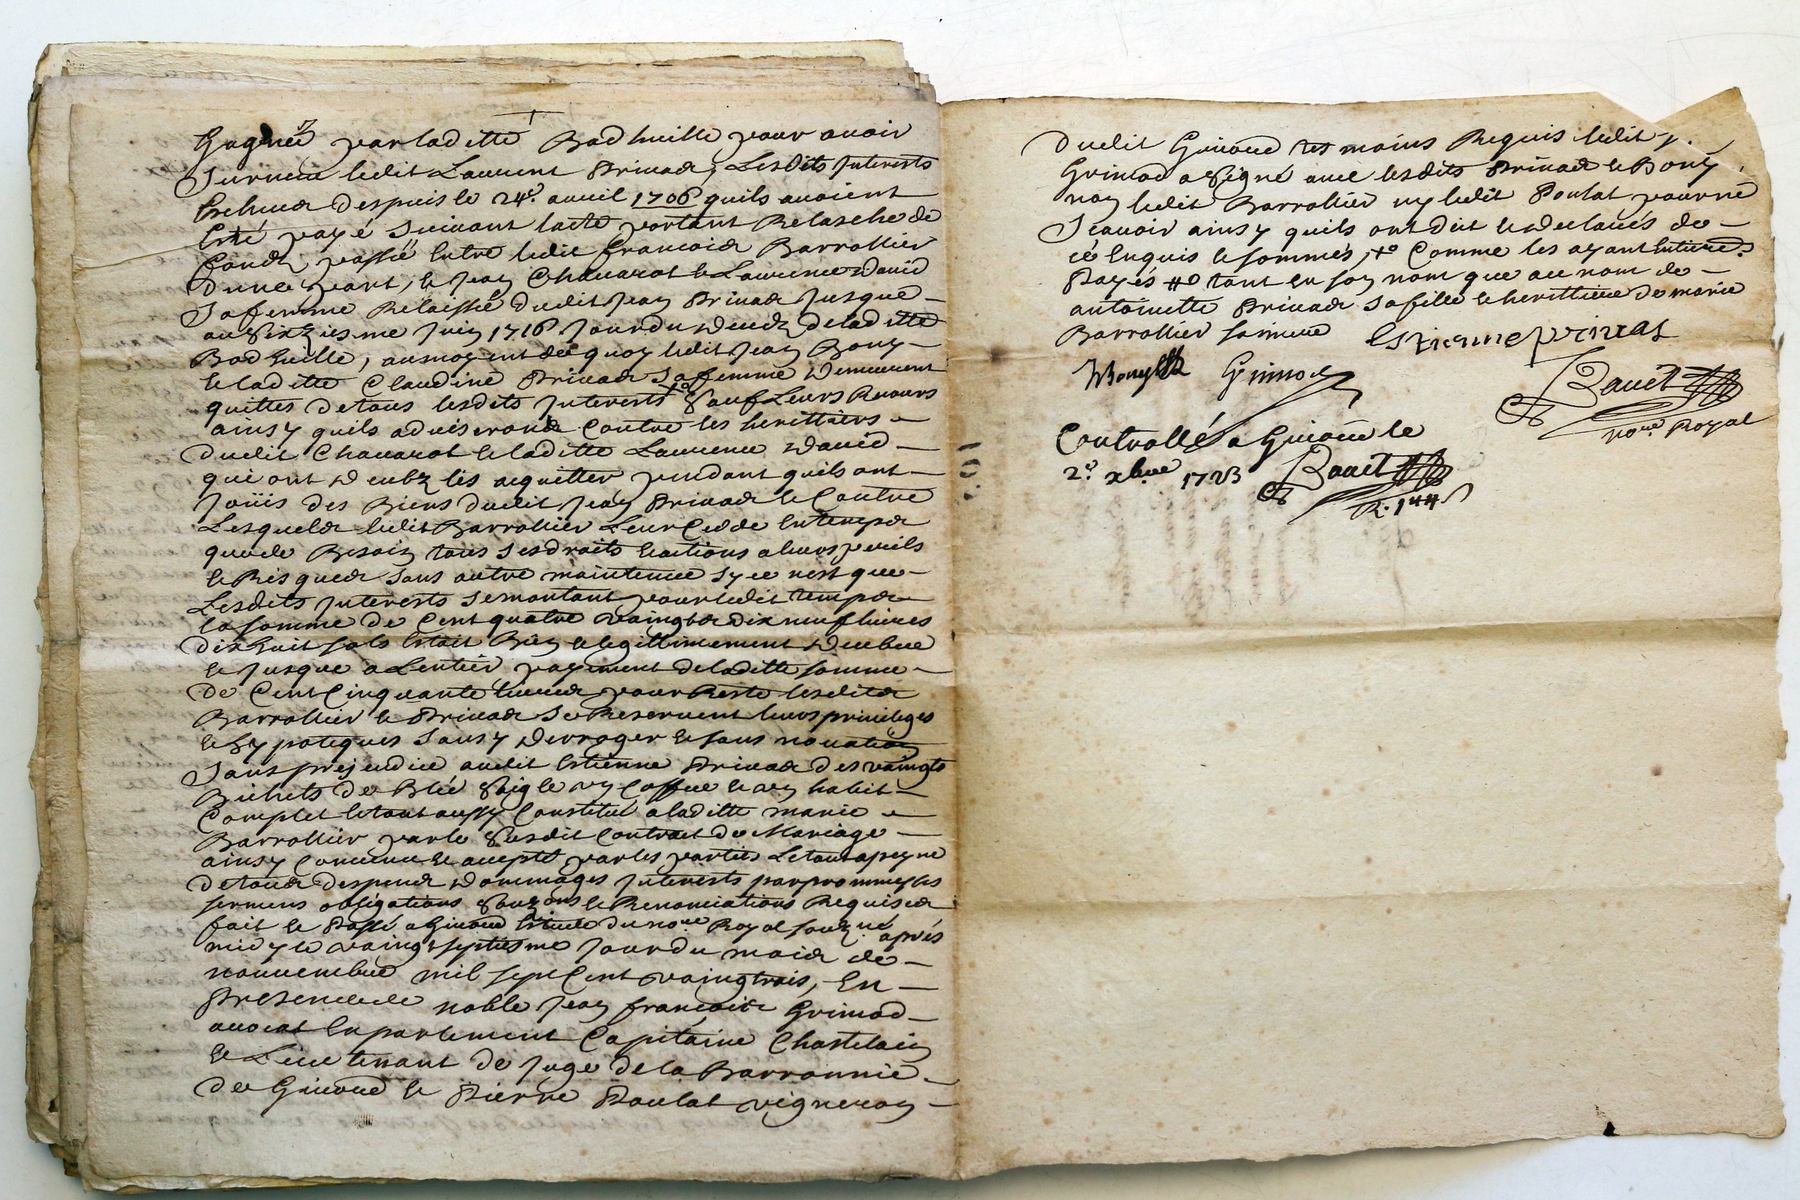 Gagnés par laditte Badhuille pour avoir
survecu ledit Laurent Privat, Lesdits Interests
Echeus despuis le 24e. avril 1706 quils avoient
Esté payé suivant lacte portant Relasche de
fonds passé Entre ledit francois Barrallier
dune part, et Jean Chavarot et Laurence David
sa femme Relaissée dudit Jean Privat Jusque
au seiziesme Juin 1716 Jour du deceds de laditte
Badhuille, aumoyent de quoy ledit Jean Bony
et laditte Claudine Privat sa femme Demeurent
quittes de tous lesdits Interests sauf Leurs Recours
ainsy quils adviseronts Contre les herittiers
dudit Chavarot et laditte Laurence David
qui ont deubz les acquitter pendant quils ont
Joüis des Biens dudit Jean Privat et Contre
Lesquels ledit Barrallier Leur Cedde En temps
que de Besoin tous ses droits et actions a leurs perils
et Risques sans autre maintenue sy ce nest que
Lesdits Interests se montant pour ledit temps
la somme de Cent quatre vaingts dix neuf livres
dix huit sols Estoit Bien et legittimement deubue
et Jusque a Lentier payement de laditte somme
de Cent Cinquante livres pour Reste lesdits
Barrallier et Privat se Reservent leurs privileges
et hypoteques sans y derroger et sans novation
sans prejudice audit Estienne Privat des vaingts
Bichets de Blé seigle un Coffre et un habit
Complet le tout aussy Constitué a laditte marie
Barrallier par le susdit Contract de Mariage
ainsy Convenu et accepté par les parties Le tout a peyne
de tous despens dommages Interests par promesses
sermens obligations soubz.ons et Renonciations Requises
fait et Passé a Givord Estude du no.re Royal souz.né après
midy le vaingtseptiesme Jour du mois de
novembre mil sept Cent vaingtrois, En
Presence de noble Jean francois Grimod
avocat En parlement Capitaine Chastelain
et Lieutenant de Juge de la Barronnie
de Givord et Pierre Poulat vigneron
dudit Givord tesmoins Requis ledit sr.
Grimod a signé avec lesdits Privat et Bony
non ledit Barrallier ny ledit Poulat pour ne
scavoir ainsy quils ont dit et declarés de
ce Enquis et sommés, Comme les ayant
Payés tant en son nom que au nom de
antoinette Privat sa fille et herittiere de marie
Barrallier sa mere Estienne privat
Bony Grimod
Bauet
no.re Royal
Controllé a Givord le
2.e xbre 1723
Bauet